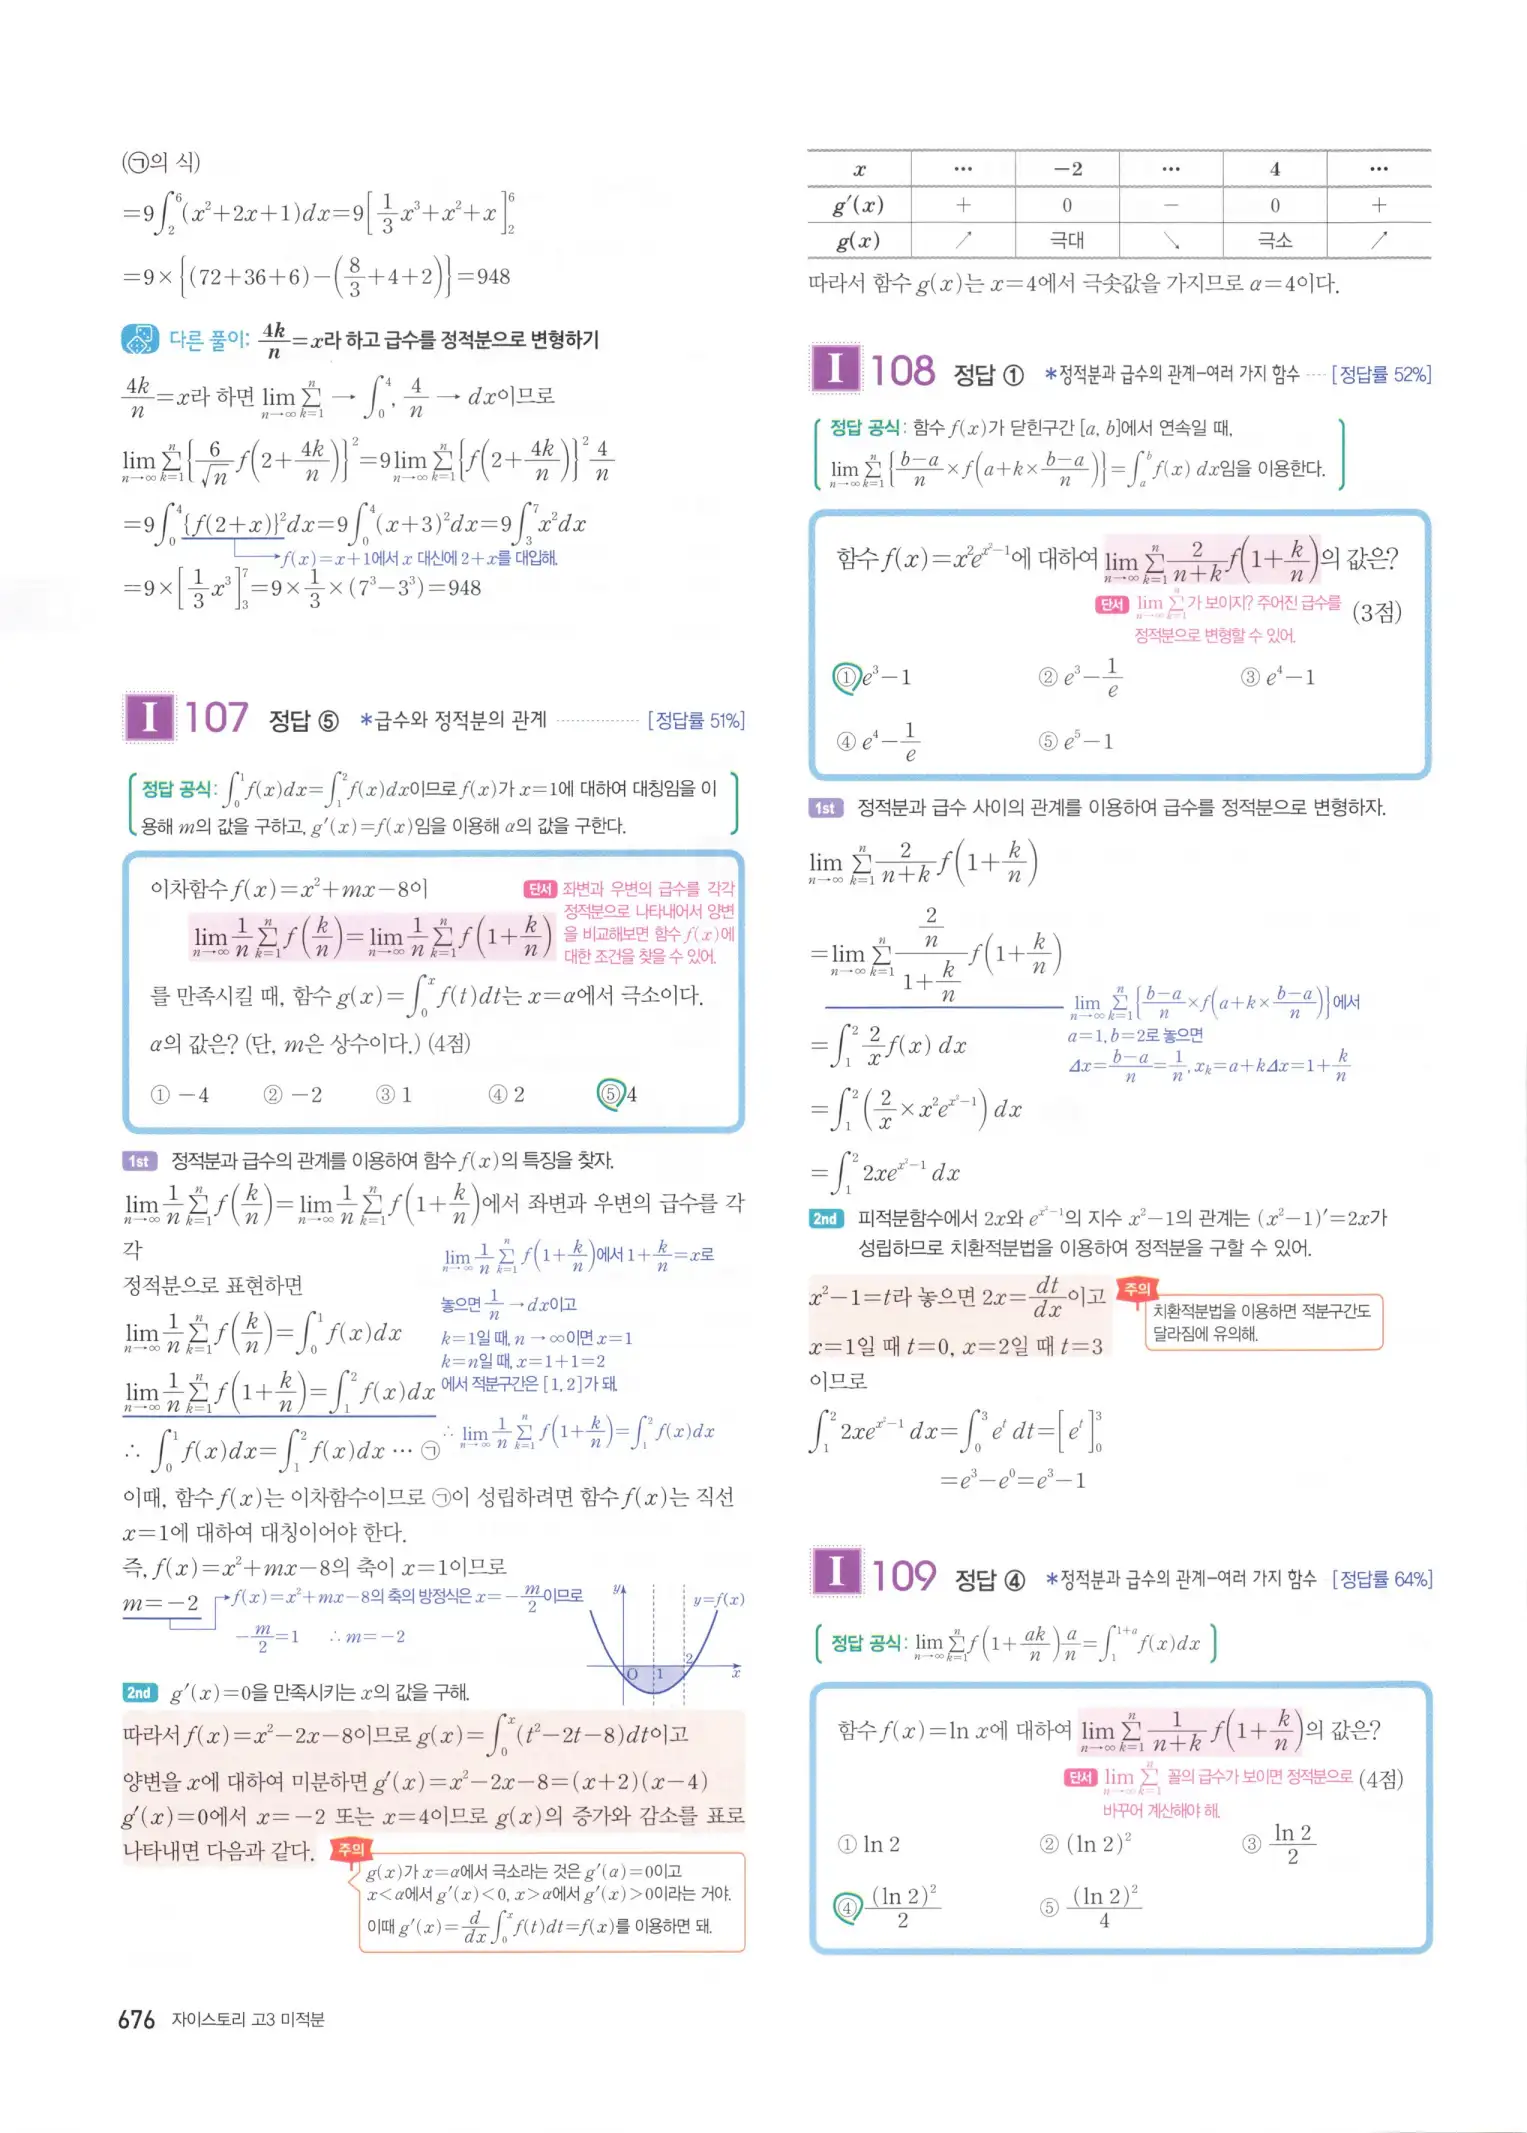 (㉠의 식)
=9∫₂⁶(x²+2x+1)dx=9[1/3 x³+x²+x]₂⁶
=9×{(72+36+6)-(8/3+4+2)}=948
다른 풀이: 4k/n=x라 하고 급수를 정적분으로 변형하기
4k/n=x라 하면 lim_{n→∞} Σ_{k=1}^{n} → ∫₀⁴, 4/n → dx이므로
lim_{n→∞} Σ_{k=1}^{n} {6/√n f(2+4k/n)}²=9 lim_{n→∞} Σ_{k=1}^{n} {f(2+4k/n)}² 4/n
=9∫₀⁴{f(2+x)}²dx=9∫₀⁴(x+3)²dx=9∫₃⁷x²dx
f(x)=x+1에서 x 대신에 2+x를 대입해.
=9×[1/3 x³]₃⁷=9×1/3×(7³-3³)=948
I 107 정답 ⑤ *급수와 정적분의 관계 [정답률 51%]
정답 공식: ∫₀¹f(x)dx=∫₁²f(x)dx이므로 f(x)가 x=1에 대하여 대칭임을 이
용해 m의 값을 구하고, g′(x)=f(x)임을 이용해 α의 값을 구한다.
이차함수 f(x)=x²+mx-8이
단서 좌변과 우변의 급수를 각각
정적분으로 나타내어서 양변
을 비교해보면 함수 f(x)에
대한 조건을 찾을 수 있어.
lim_{n→∞} 1/n Σ_{k=1}^{n} f(k/n)=lim_{n→∞} 1/n Σ_{k=1}^{n} f(1+k/n)
를 만족시킬 때, 함수 g(x)=∫₀ˣ f(t)dt는 x=α에서 극소이다.
α의 값은? (단, m은 상수이다.) (4점)
① -4 ② -2 ③ 1 ④ 2 ⑤ 4
1st 정적분과 급수의 관계를 이용하여 함수 f(x)의 특징을 찾자.
lim_{n→∞} 1/n Σ_{k=1}^{n} f(k/n)=lim_{n→∞} 1/n Σ_{k=1}^{n} f(1+k/n)에서 좌변과 우변의 급수를 각
각
정적분으로 표현하면
lim_{n→∞} 1/n Σ_{k=1}^{n} f(k/n)=∫₀¹ f(x)dx
lim_{n→∞} 1/n Σ_{k=1}^{n} f(1+k/n)=∫₁² f(x)dx
lim_{n→∞} 1/n Σ_{k=1}^{n} f(1+k/n)에서 1+k/n=x로
놓으면 1/n → dx이고
k=1일 때, n → ∞이면 x=1
k=n일 때, x=1+1=2
에서 적분구간은 [1, 2]가 돼.
∴ lim_{n→∞} 1/n Σ_{k=1}^{n} f(1+k/n)=∫₁² f(x)dx
∴ ∫₀¹ f(x)dx=∫₁² f(x)dx … ㉠
이때, 함수 f(x)는 이차함수이므로 ㉠이 성립하려면 함수 f(x)는 직선
x=1에 대하여 대칭이어야 한다.
즉, f(x)=x²+mx-8의 축이 x=1이므로
m=-2
f(x)=x²+mx-8의 축의 방정식은 x=-m/2이므로
-m/2=1 ∴ m=-2
y y=f(x)
O 1 2 x
2nd g′(x)=0을 만족시키는 x의 값을 구해.
따라서 f(x)=x²-2x-8이므로 g(x)=∫₀ˣ (t²-2t-8)dt이고
양변을 x에 대하여 미분하면 g′(x)=x²-2x-8=(x+2)(x-4)
g′(x)=0에서 x=-2 또는 x=4이므로 g(x)의 증가와 감소를 표로
나타내면 다음과 같다.
주의
g(x)가 x=α에서 극소라는 것은 g′(α)=0이고
x<α에서 g′(x)<0, x>α에서 g′(x)>0이라는 거야.
이때 g′(x)=d/dx ∫₀ˣ f(t)dt=f(x)를 이용하면 돼.
676 자이스토리 고3 미적분
x … -2 … 4 …
g′(x) + 0 - 0 +
g(x) ↗ 극대 ↘ 극소 ↗
따라서 함수 g(x)는 x=4에서 극솟값을 가지므로 α=4이다.
I 108 정답 ① *정적분과 급수의 관계-여러 가지 함수 [정답률 52%]
정답 공식: 함수 f(x)가 닫힌구간 [a, b]에서 연속일 때,
lim_{n→∞} Σ_{k=1}^{n} {(b-a)/n×f(a+k×(b-a)/n)}=∫ₐᵇ f(x) dx임을 이용한다.
함수 f(x)=x²e^{x²-1}에 대하여 lim_{n→∞} Σ_{k=1}^{n} 2/(n+k) f(1+k/n)의 값은?
단서 lim_{n→∞} Σ_{k=1}^{n}가 보이지? 주어진 급수를 (3점)
정적분으로 변형할 수 있어.
① e³-1 ② e³-1/e ③ e⁴-1
④ e⁴-1/e ⑤ e⁵-1
1st 정적분과 급수 사이의 관계를 이용하여 급수를 정적분으로 변형하자.
lim_{n→∞} Σ_{k=1}^{n} 2/(n+k) f(1+k/n)
=lim_{n→∞} Σ_{k=1}^{n} (2/n)/(1+k/n) f(1+k/n)
lim_{n→∞} Σ_{k=1}^{n} {(b-a)/n×f(a+k×(b-a)/n)}에서
a=1, b=2로 놓으면
Δx=(b-a)/n=1/n, x_k=a+kΔx=1+k/n
=∫₁² 2/x f(x) dx
=∫₁² (2/x×x²e^{x²-1}) dx
=∫₁² 2xe^{x²-1} dx
2nd 피적분함수에서 2x와 e^{x²-1}의 지수 x²-1의 관계는 (x²-1)′=2x가
성립하므로 치환적분법을 이용하여 정적분을 구할 수 있어.
x²-1=t라 놓으면 2x=dt/dx이고
x=1일 때 t=0, x=2일 때 t=3
이므로
주의
치환적분법을 이용하면 적분구간도
달라짐에 유의해.
∫₁² 2xe^{x²-1} dx=∫₀³ eᵗ dt=[eᵗ]₀³
=e³-e⁰=e³-1
I 109 정답 ④ *정적분과 급수의 관계-여러 가지 함수 [정답률 64%]
정답 공식: lim_{n→∞} Σ_{k=1}^{n} f(1+ak/n) a/n=∫₁^{1+a} f(x)dx
함수 f(x)=ln x에 대하여 lim_{n→∞} Σ_{k=1}^{n} 1/(n+k) f(1+k/n)의 값은?
단서 lim_{n→∞} Σ_{k=1}^{n} 꼴의 급수가 보이면 정적분으로 (4점)
바꾸어 계산해야 해.
① ln 2 ② (ln 2)² ③ ln 2/2
④ (ln 2)²/2 ⑤ (ln 2)²/4